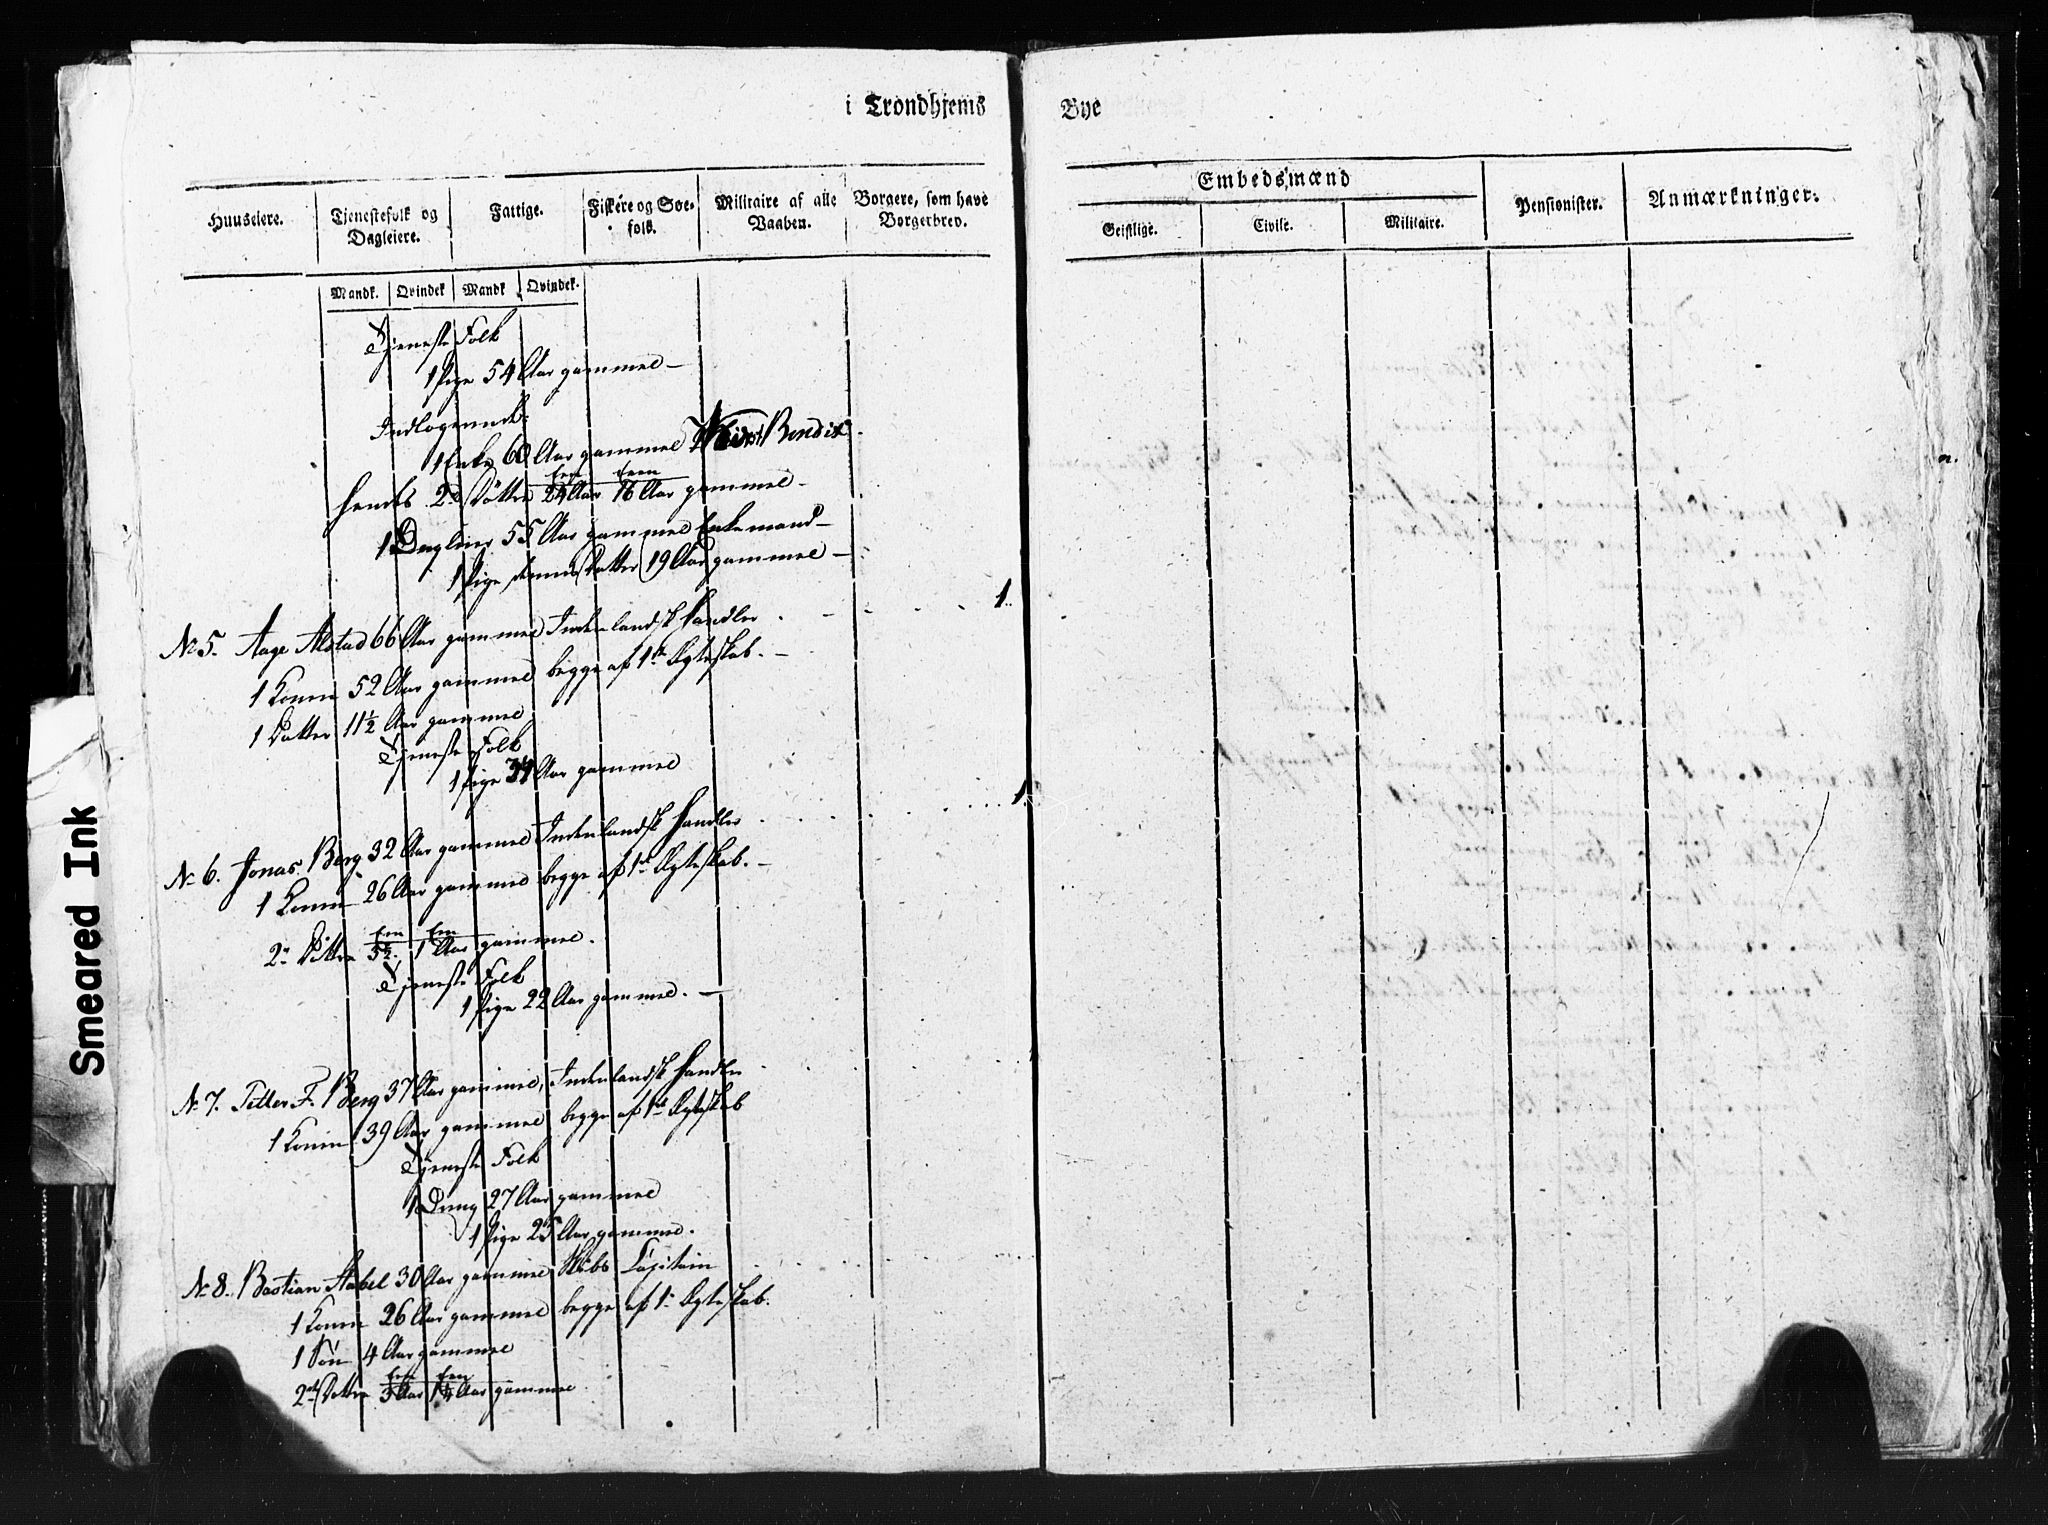 i Trondhjems Bye
Huuseiere. Tjenestefolk og Dagleiere. Fattige. Fiskere og Søefolk. Militaire af alle Vaaben. Borgere, som have Borgerbrev.
Embedsmænd Pensionister. Anmærkninger.
Geistlige. Civile. Militaire.
Mandk. Qvindek Mandk Qvindek.
Tjeneste Folk
1 Pige 54 Aar gammel –
Indlogerende:
1 Enke 60 Aar gammel Bendix
Een Een
hendes 2de Døttre 24 Aar 16 Aar gammel –
1 Dagleier 55 Aar gammel Enkemand –
1 Pige Datter 19 Aar gammel –
No 5. Aage Alstad 66 Aar gammel Indenlandsk Handler 1
1 Konne 52 Aar gammel begge af 1te Ægteskab. –
1 Datter 11½ Aar gammel
Tjeneste Folk
1 Pige 34 Aar gammel
No 6. Jonas Berg 32 Aar gammel Indenlandsk Handler 1
1 Konne 26 Aar gammel begge af 1te Ægteskab. –
Een Een
2de Døttre 3½. 1 Aar gammel.
Tjeneste Folk
1 Pige 22 Aar gammel. –
No 7. Petter F. Berg 37 Aar gammel, Indenlandsk Handler
1 Konne 39 Aar gammel begge af 1te Ægteskab
Tjeneste Folk
1 Dreng 27 Aar gammel
1 Pige 25 Aar gammel.
No 8. Bastian Stabel 30 Aar gammel Skibs Capitain
1 Konne 26 Aar gammel begge af 1te Ægteskab.
1 Søn 4 Aar gammel
Een Een
2de Døttre 3 Aar 1¼ Aar gammel
Smeared Ink